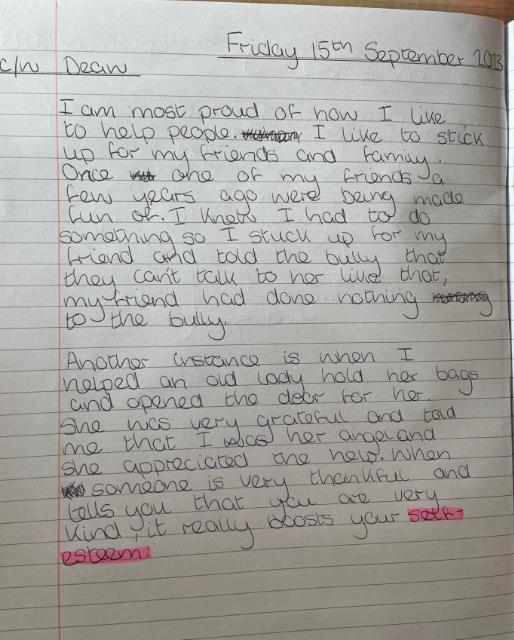 Friday 15th September 2023
c/w Dean
I am most proud of how I like
to help people. I like to stick
up for my friends and family.
Once one of my friends a
few years ago were being made
fun of. I knew I had to do
something so I stuck up for my
friend and told the bully that
they can't talk to her like that,
my friend had done nothing
to the bully.
Another instance is when I
helped an old lady hold her bags
and opened the door for her.
She was very grateful and told
me that I was her angel and
she appriciated the help. When
someone is very thankful and
tells you that you are very
kind, it really boosts your self-
esteem.